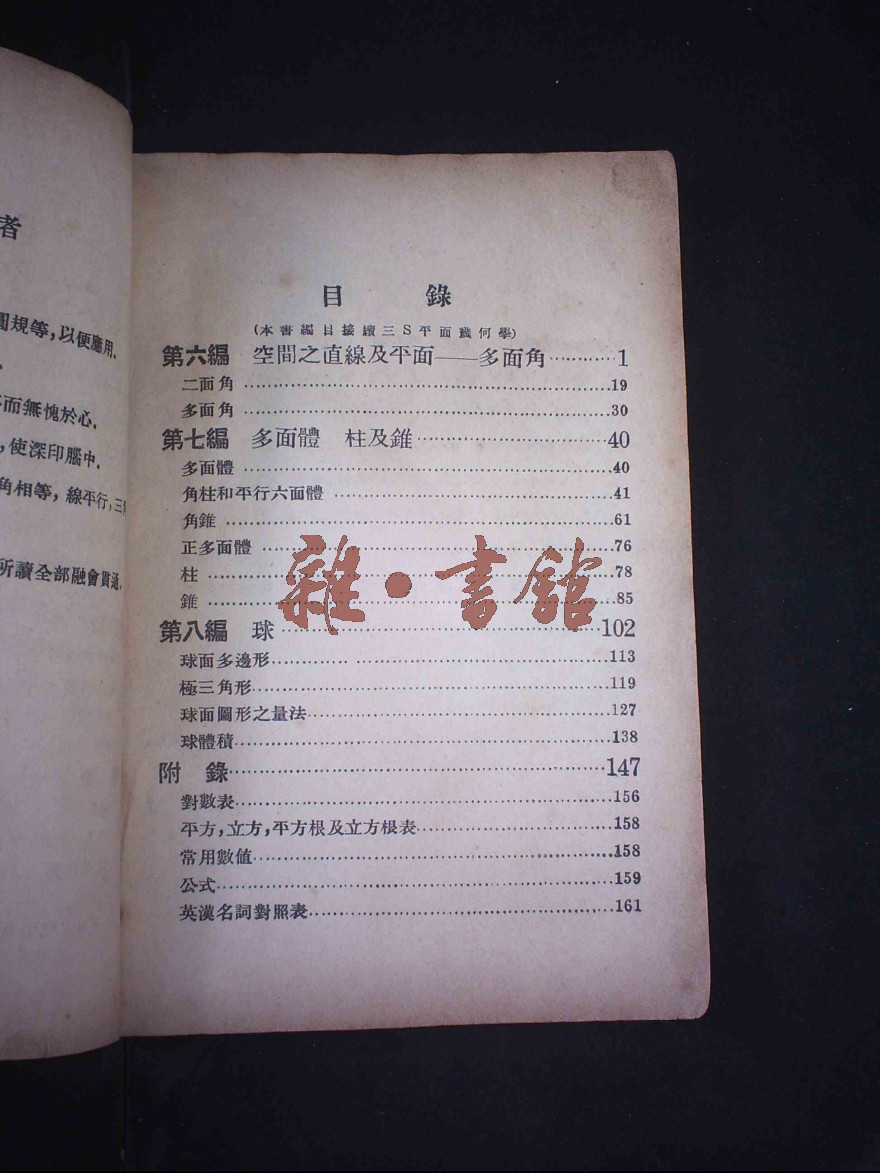 者
圓規等，以便應用．
而無愧於心．
，使深印腦中．
角相等，線平行，三
所讀全部融會貫通．
目錄
(本書編目接續三S平面幾何學)
第六編 空間之直線及平面——多面角…………1
二面角…………19
多面角…………30
第七編 多面體 柱及錐…………40
多面體…………40
角柱和平行六面體…………41
角錐…………61
正多面體…………76
柱…………78
錐…………85
第八編 球…………102
球面多邊形…………113
極三角形…………119
球面圖形之量法…………127
球體積…………138
附錄…………147
對數表…………156
平方，立方，平方根及立方根表…………158
常用數値…………158
公式…………159
英漢名詞對照表…………161
雜·書館